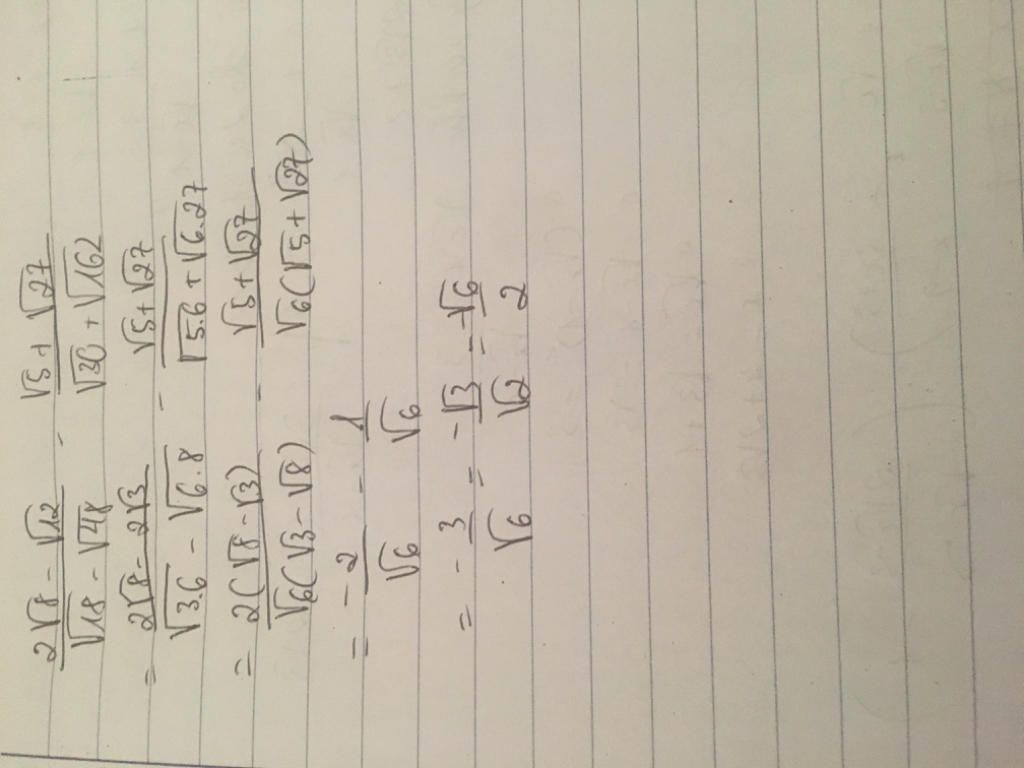 (2√8 - √12)/(√18 - √48) - (√5 + √27)/(√30 + √162)
= (2√8 - 2√3)/(√3.6 - √6.8) - (√5 + √27)/(√5.6 + √6.27)
= 2(√8 - √3)/√6(√3 - √8) - (√5 + √27)/√6(√5 + √27)
= - 2/√6 - 1/√6
= - 3/√6 = - √3/√2 = -√6/2